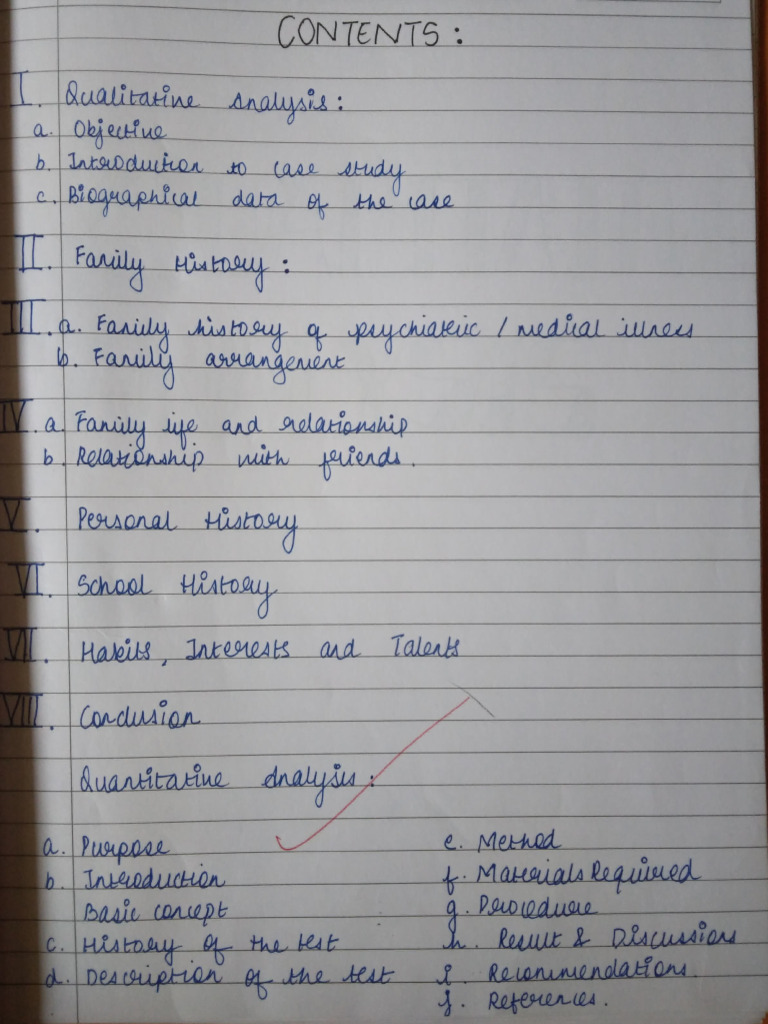 CONTENTS :
I. Qualitative Analysis :
a. Objective
b. Introduction to case study
c. Biographical data of the case
II. Family History :
III. a. Family history of psychiatric / medical illness
b. Family arrangement
IV. a. Family life and relationship
b. Relationship with friends.
V. Personal History
VI. School History
VII. Habits, Interests and Talents
VIII. Conclusion
Quantitative Analysis :
a. Purpose
b. Introduction
Basic concept
c. History of the test
d. Description of the test
e. Method
f. Materials Required
g. Procedure
h. Result & Discussions
i. Recommendations.
j. References.